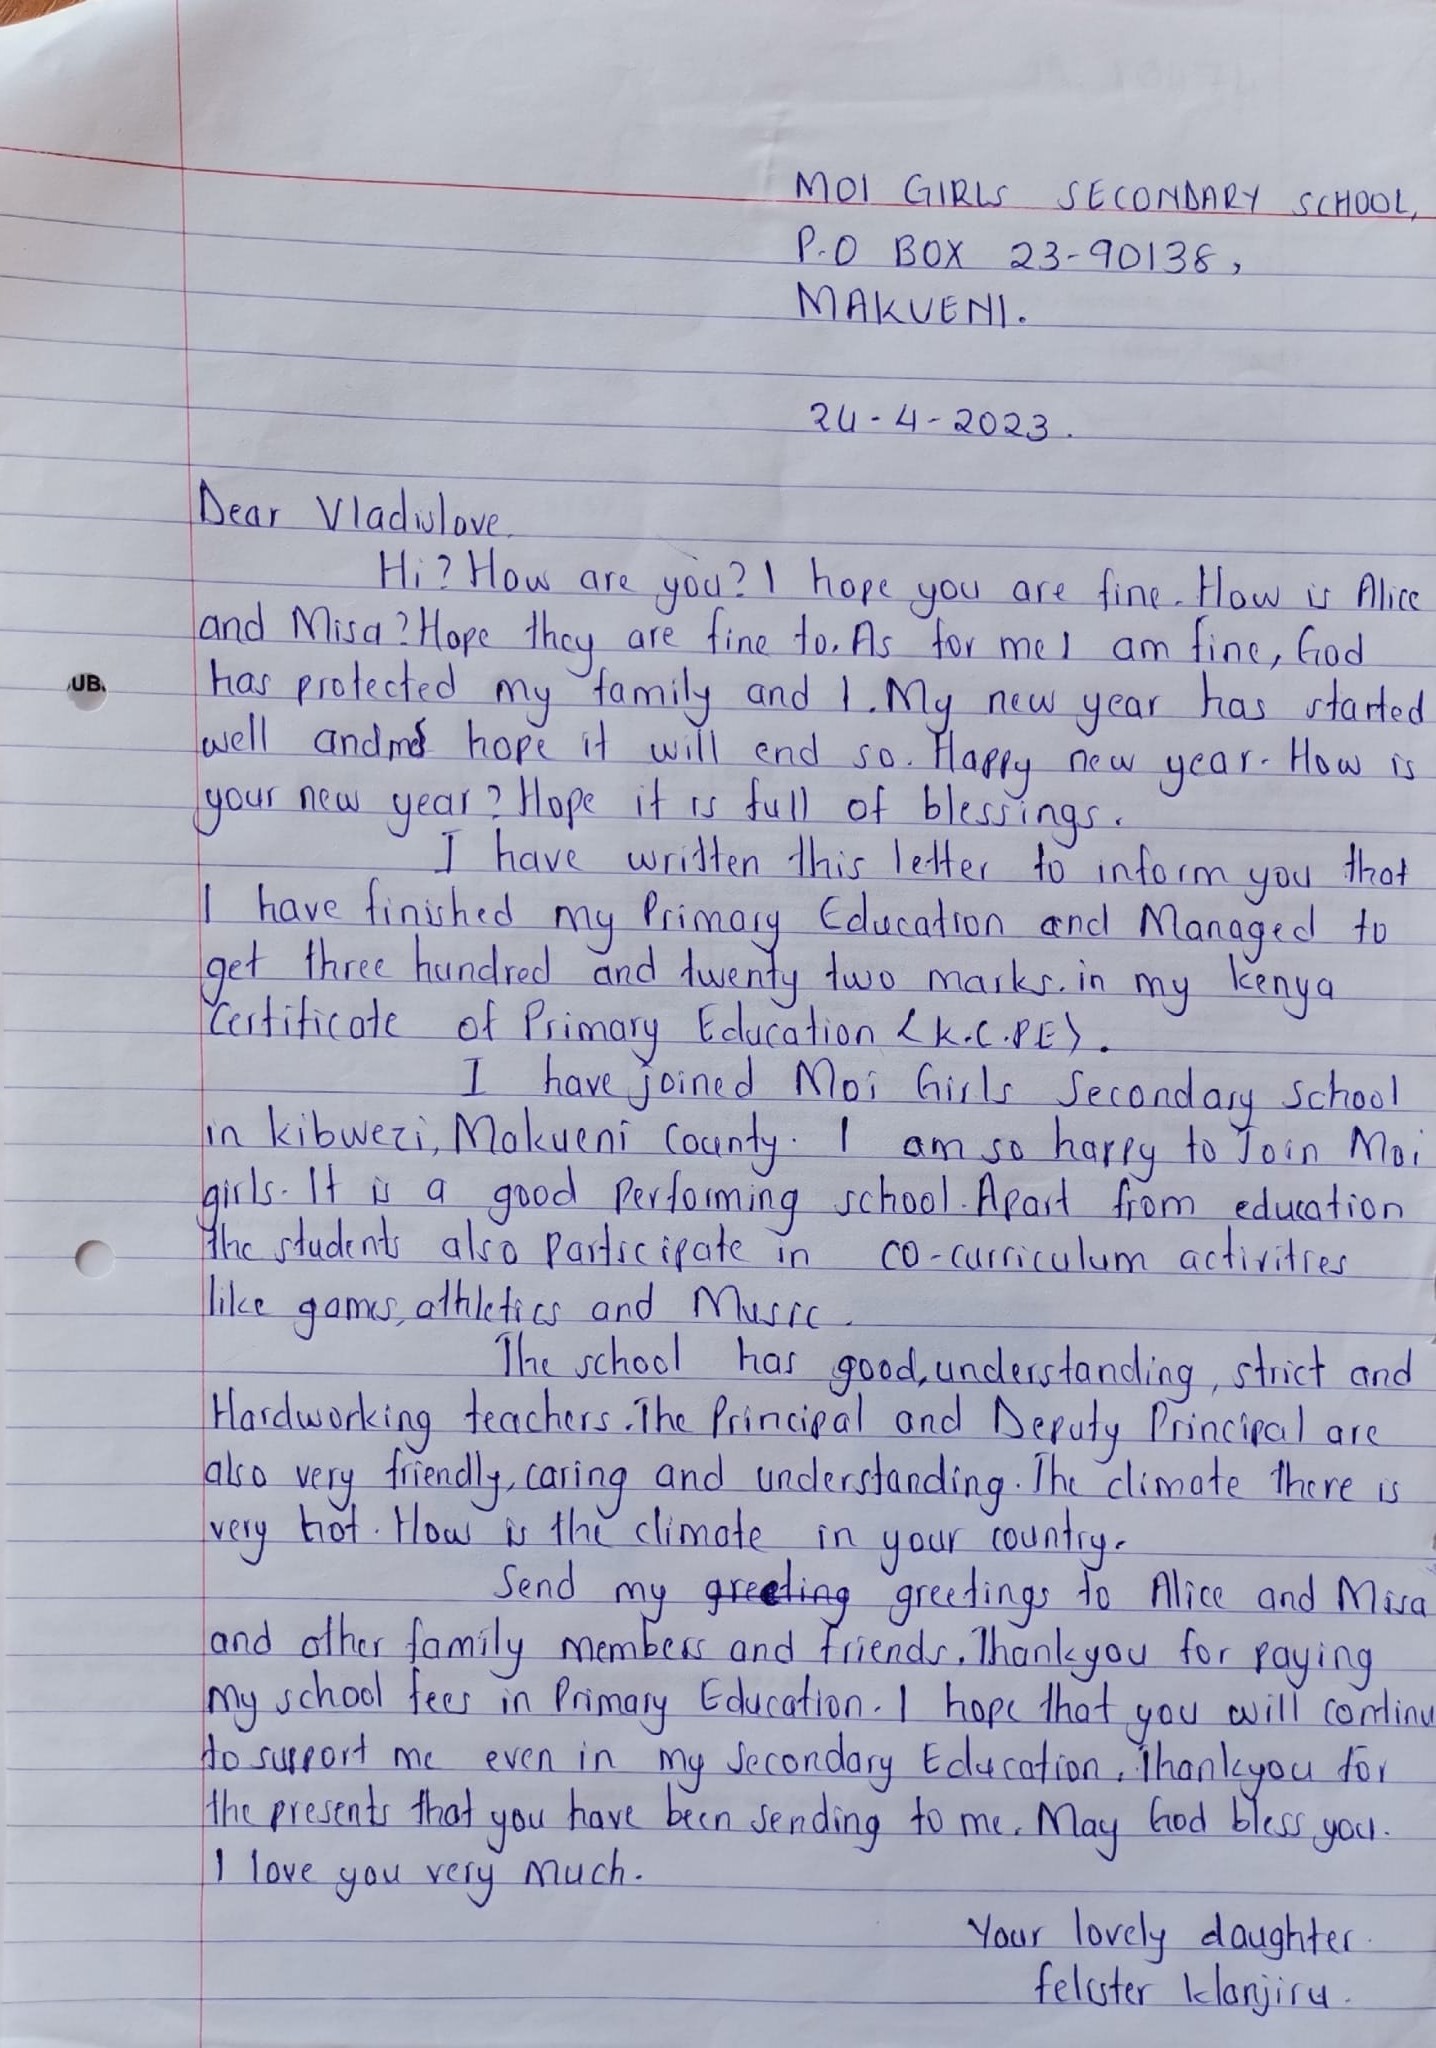 MOI GIRLS SECONDARY SCHOOL,
P.O BOX 23-90138,
MAKUENI.
24-4-2023.
Dear Vladislove.
Hi? How are you? I hope you are fine. How is Alice
and Misa? Hope they are fine to. As for me I am fine, God
has protected my family and I. My new year has started
UB.
well and hope it will end so. Happy new year. How is
your new year? Hope it is full of blessings.
I have written this letter to inform you that
I have finished my Primary Education and Managed to
get three hundred and twenty two marks. in my kenya
Certificate of Primary Education <K.C.PE>.
I have joined Moi Girls Secondary School
in kibwezi, Makueni County. I am so happy to Join Moi
girls. It is a good Performing school. Apart from education
the students also Participate in co-curriculum activities
like games, athletics and Music.
The school has good, understanding, strict and
Hardworking teachers. The Principal and Deputy Principal are
also very friendly, caring and understanding. The climate there is
very hot. How is the climate in your country.
Send my greeting greetings to Alice and Misa
and other family members and friends. Thankyou for paying
my school fees in Primary Education. I hope that you will continu
to support me even in my Secondary Education. Thankyou for
the presents that you have been sending to me. May God bless you.
I love you very much.
Your lovely daughter.
felister Wanjiru.